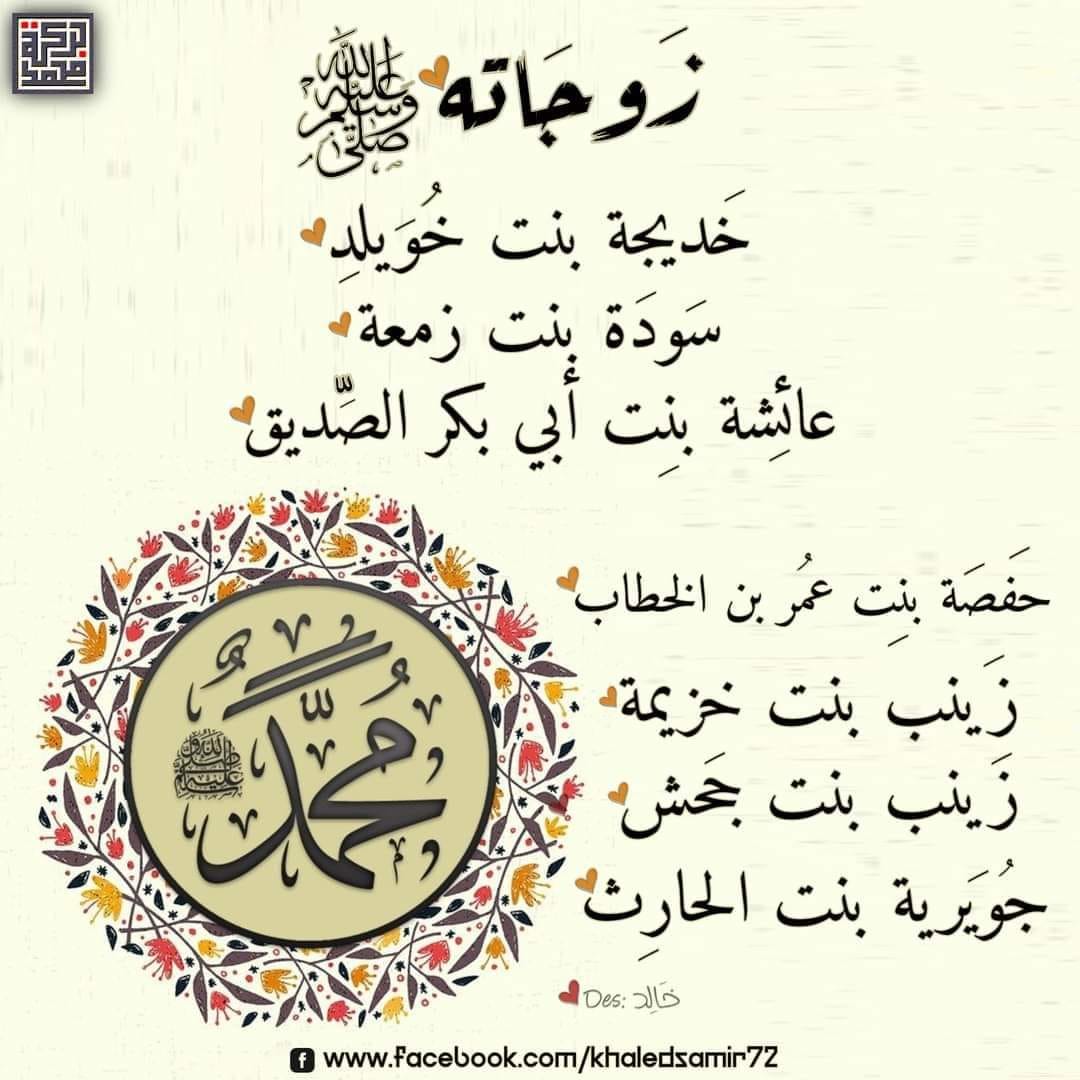 زَوجَاته صلى الله عليه وسلم
خَديجة بنت خُوَيلدِ
سَودَة بنت زمعة
عائِشة بنِت أبي بكر الصِّديق
حَفصَة بنِت عمُر بن الخطاب
زَينب بنت خزيمة
زَينب بنت جَحش
جُوَيرية بنت الحارِث
مُحَمَّدٌ
صلى الله عليه وسلم
Des: خَالِد
www.facebook.com/khaledsamir72